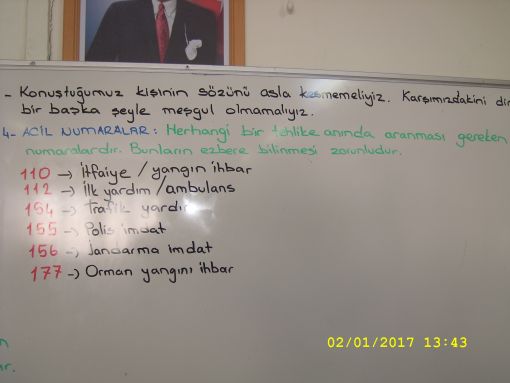 - Konuştuğumuz kişinin sözünü asla kesmemeliyiz. Karşımızdakini
bir başka şeyle meşgul olmamalıyız.
4- ACİL NUMARALAR: Herhangi bir tehlike anında aranması gereken
numaralardır. Bunların ezbere bilinmesi zorunludur.
110 → İtfaiye / yangın ihbar
112 → İlk yardım / ambulans
154 → Trafik yardım
155 → Polis imdat
156 → Jandarma imdat
177 → Orman yangını ihbar
02/01/2017 13:43